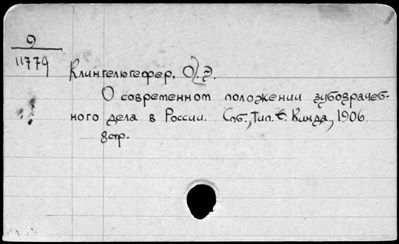 9
11779
Клингельгефер, О.Э.
О современном положении зубоврачеб-
ного дела в России. Спб., Тип. Е. Кинда, 1906.
8стр.